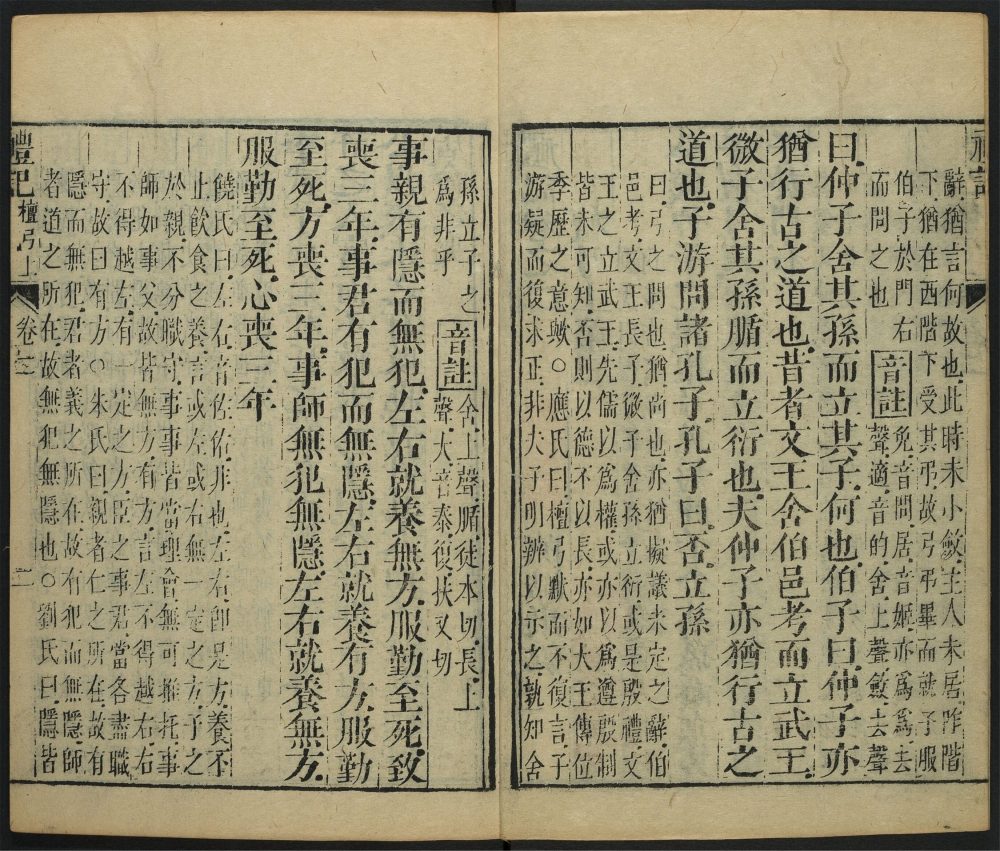 辭猶言何故也此時未小斂主人未居阼階
下猶在西階下受其弔故弓弔畢而就子服
伯子於門右
而問之也
音註
免音問居音姬亦爲爲去
聲適音的舍上聲斂去聲
曰仲子舍其孫而立其子何也伯子曰仲子亦
猶行古之道也昔者文王舍伯邑考而立武王
微子舍其孫腯而立衍也夫仲子亦猶行古之
道也子游問諸孔子孔子曰否立孫
曰弓之問也猶尚也亦猶擬議未定之辭伯
邑考文王長子微子舍孫立衍或是殷禮文
王之立武王先儒以爲權或亦以爲遵殷制
皆未可知否則以德不以長亦如大王傳位
季歷之意歟○應氏曰檀弓默而不復言子
游疑而復求正非夫子明辨以示之孰知舍
孫立子之
爲非乎
音註
舍上聲腯徒本切長上
聲大音泰復扶又切
事親有隱而無犯左右就養無方服勤至死致
喪三年事君有犯而無隱左右就養有方服勤
至死方喪三年事師無犯無隱左右就養無方
服勤至死心喪三年
饒氏曰左右音佐佑非也左右即是方養不
止飲食之養言或左或右無一定之方子之
於親不分職守事事皆當理會無可推托事
師如事父故皆無方有方言左不得越右右
不得越左有一定之方臣之事君當各盡職
守故曰有方○朱氏曰親者仁之所在故有
隱而無犯君者義之所在故有犯而無隱師
者道之所在故無犯無隱也○劉氏曰隱皆
禮記 檀弓上 卷之二